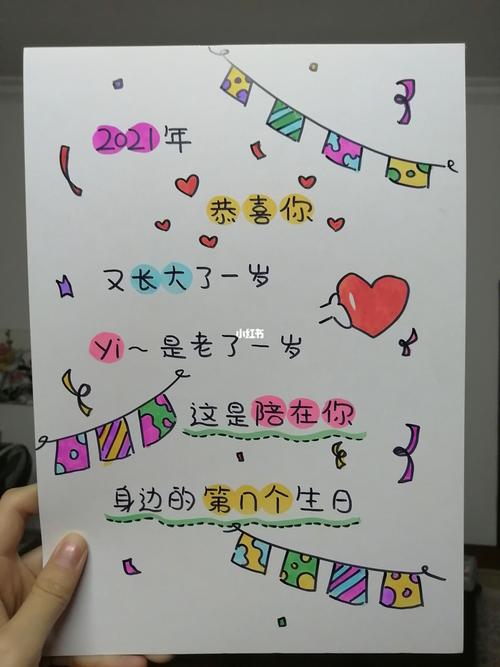 2021年
恭喜你
又长大了一岁
小红书
Yi～是老了一岁
这是陪在你
身边的第n个生日